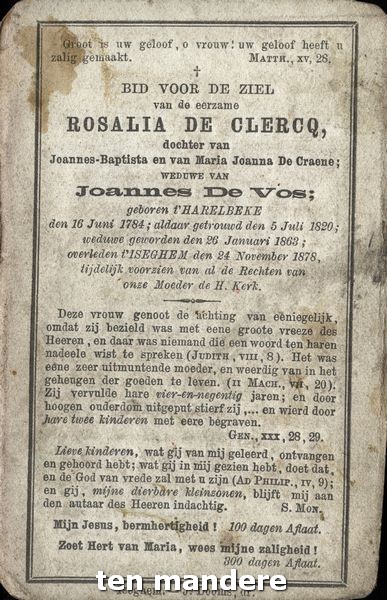 Groot is uw geloof, o vrouw! uw geloof heeft u
zalig gemaakt. MATTH., XV, 28.
†
BID VOOR DE ZIEL
van de eerzame
ROSALIA DE CLERCQ,
dochter van
Joannes-Baptista en van Maria Joanna De Craene;
WEDUWE VAN
Joannes De Vos;
geboren t'HARELBEKE
den 16 Juni 1784; aldaar getrouwd den 5 Juli 1820;
weduwe geworden den 26 Januari 1863;
overleden t'ISEGHEM den 24 November 1878,
tijdelijk voorzien van al de Rechten van
onze Moeder de H. Kerk.
Deze vrouw genoot de achting van eeniegelijk,
omdat zij bezield was met eene groote vreeze des
Heeren, en daar was niemand die een woord ten haren
nadeele wist te spreken (JUDITH, VIII, 8). Het was
eene zeer uitmuntende moeder, en weerdig van in het
geheugen der goeden te leven. (II MACH., VII, 20).
Zij vervulde hare vier-en-negentig jaren; en door
hoogen ouderdom uitgeput stierf zij,... en wierd door
hare twee kinderen met eere begraven.
GEN., XXX, 28, 29.
Lieve kinderen, wat gij van mij geleerd, ontvangen
en gehoord hebt; wat gij in mij gezien hebt, doet dat,
en de God van vrede zal met u zijn (AD PHILIP., IV, 9);
en gij, mijne dierbare kleinzonen, blijft mij aan
den autaar des Heeren indachtig. S. MON.
Mijn Jesus, bermhertigheid! 100 dagen Aflaat.
Zoet Hert van Maria, wees mijne zaligheid!
300 dagen Aflaat.
ten mandere